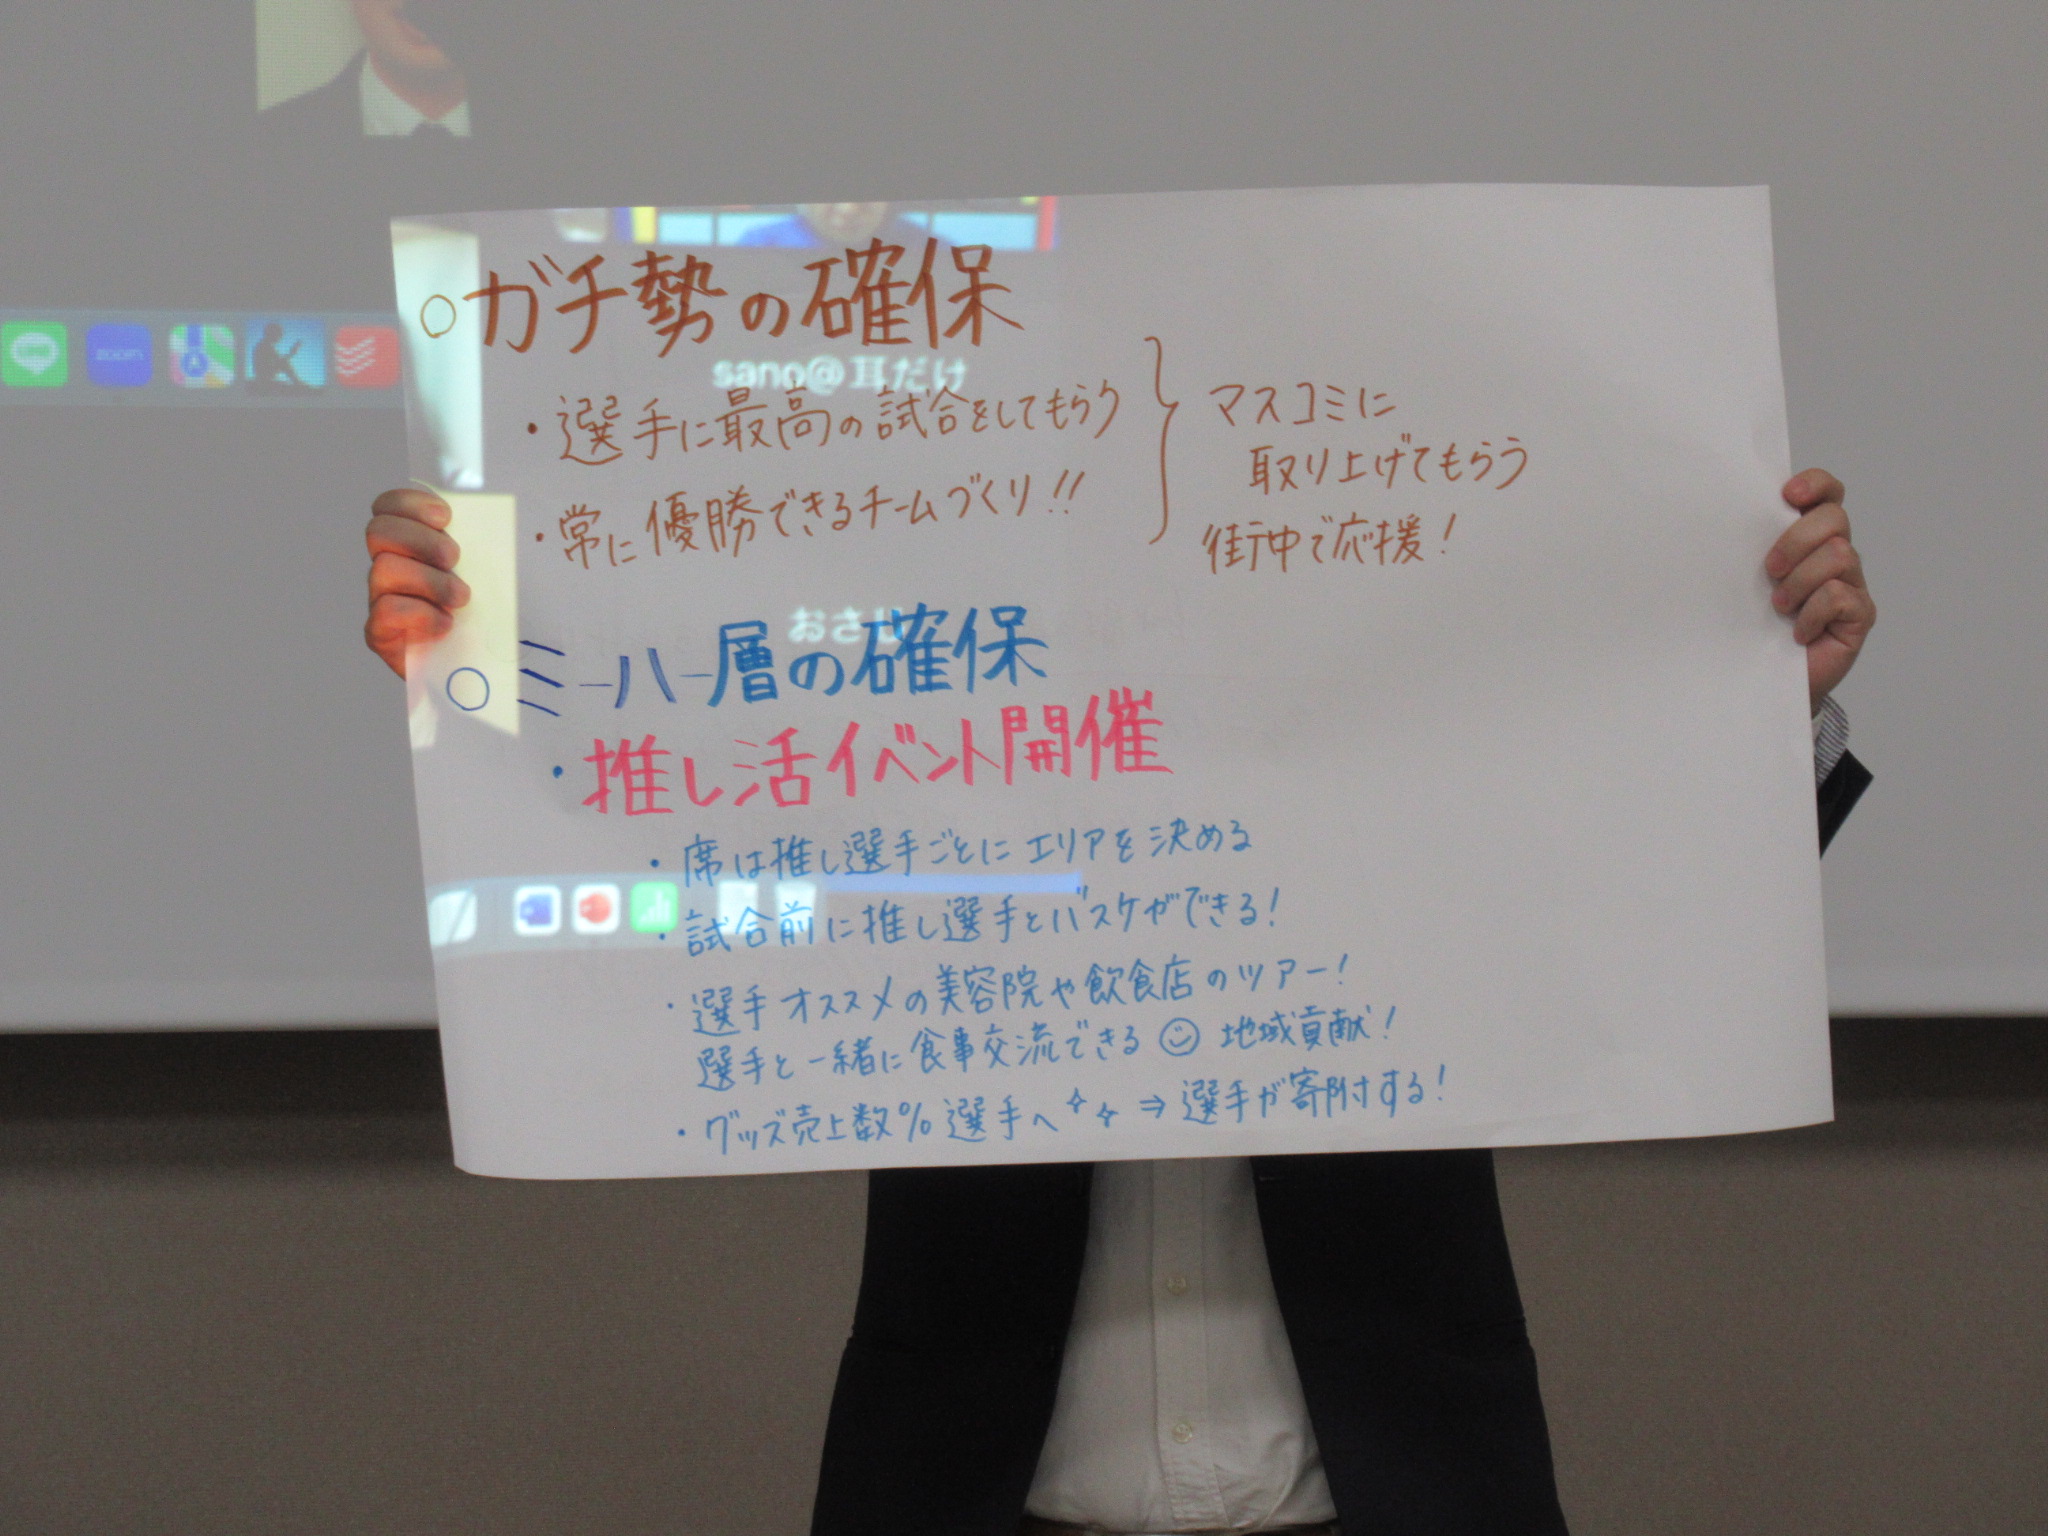 ○ガチ勢の確保
sano@耳だけ
・選手に最高の試合をしてもらう
・常に優勝できるチームづくり!!
マスコミに
取り上げてもらう
街中で応援!
○ミーハー層の確保
・推し活イベント開催
・席は推し選手ごとにエリアを決める
・試合前に推し選手とバスケができる!
・選手オススメの美容院や飲食店のツアー!
選手と一緒に食事交流できる☺ 地域貢献!
・グッズ売上数%選手へ ⇒ 選手が寄附する!
zoom